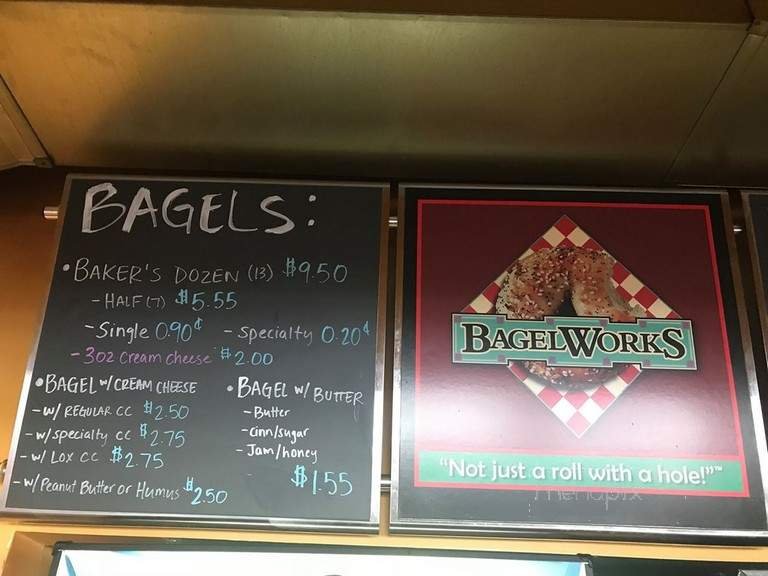 BAGELS:
• BAKER'S DOZEN (13) $9.50
- HALF (7) $5.55
- Single 0.90¢ - Specialty 0.20¢
- 3oz cream cheese $2.00
• BAGEL W/ CREAM CHEESE
- W/ REGULAR CC $2.50
- w/ specialty cc $2.75
- W/ LOX CC $2.75
- W/ Peanut Butter or Humus $2.50
• BAGEL W/ BUTTER
- Butter
- Cinn/sugar
- Jam/honey
$1.55
BAGELWORKS
"Not just a roll with a hole!"™
menupix